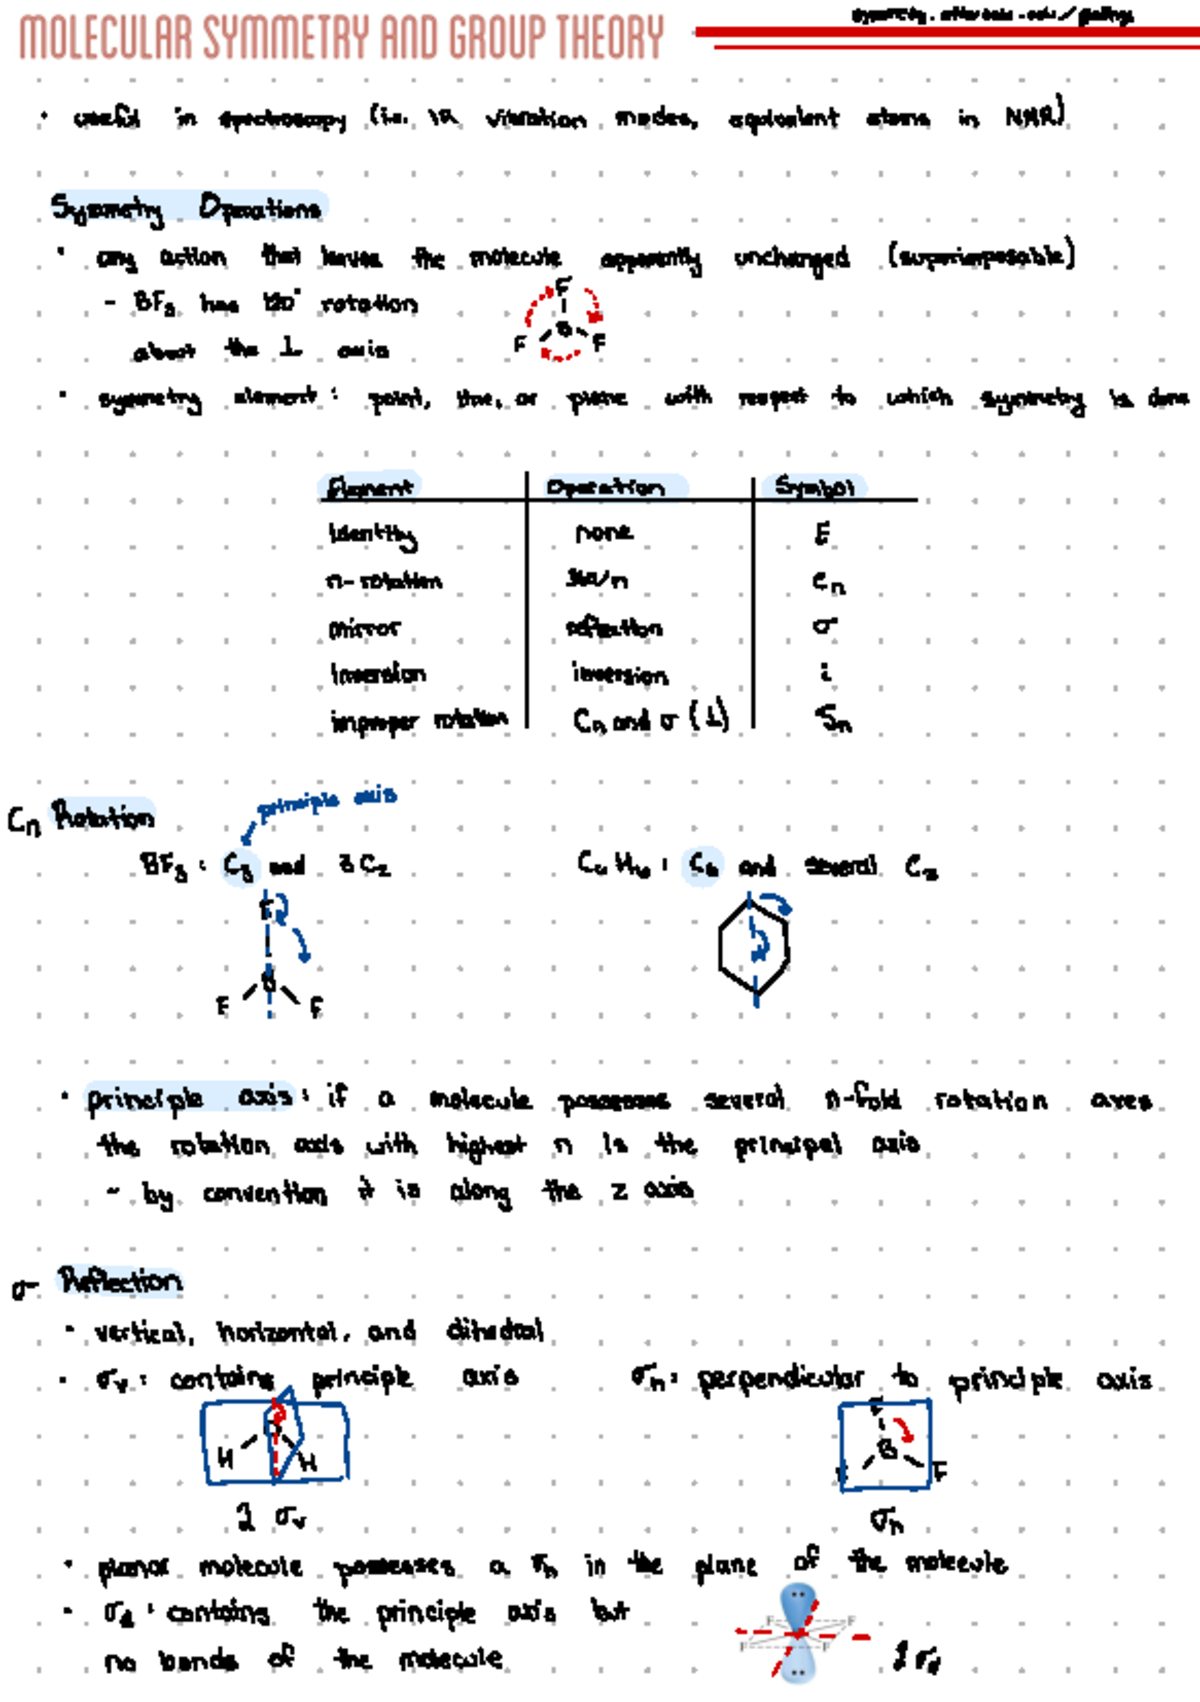 MOLECULAR SYMMETRY AND GROUP THEORY
• useful in spectroscopy (i.e. IR vibration modes, equivalent atoms in NMR)
Symmetry Operations
• any action that leaves the molecule apparently unchanged (superimposable)
- BF₃ has 120° rotation
about the ⊥ axis
F
B
F F
• symmetry element: point, line, or plane with respect to which symmetry is done
Element Operation Symbol
Identity none E
n-rotation 360/n Cn
mirror reflection σ
Inversion inversion i
improper rotation Cn and σ (⊥) Sn
principle axis
Cn Rotation
BF₃: C₃ and 3 C₂ C₆H₆: C₆ and several C₂
F
B
F F
• principle axis: if a molecule possesses several n-fold rotation axes
the rotation axis with highest n is the principal axis
- by convention it is along the z axis
σ Reflection
• vertical, horizontal, and dihedral
• σv: contains principle axis σh: perpendicular to principle axis
H H
F
B
F F
2 σv σh
• planar molecule possesses a σh in the plane of the molecule
• σd: contains the principle axis but
no bonds of the molecule
F F
F F
2 σd